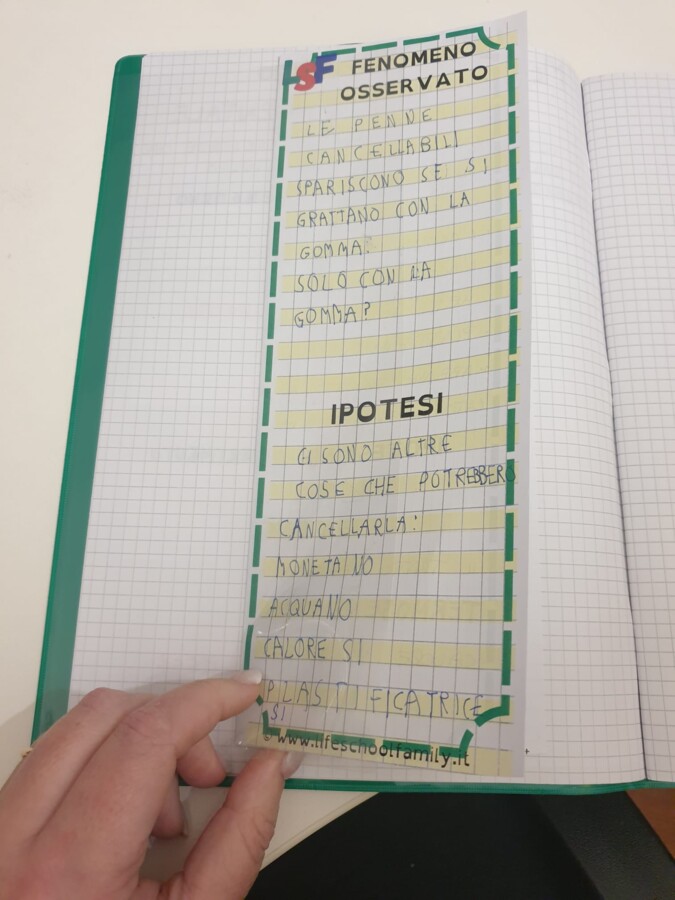 LSF FENOMENO
OSSERVATO
LE PENNE
CANCELLABILI
SPARISCONO SE SI
GRATTANO CON LA
GOMMA.
SOLO CON LA
GOMMA?
IPOTESI
CI SONO ALTRE
COSE CHE POTREBBERO
CANCELLARLA:
MONETA NO
ACQUA NO
CALORE SI
PLASTIFICATRICE
SI
© www.lifeschoolfamily.it